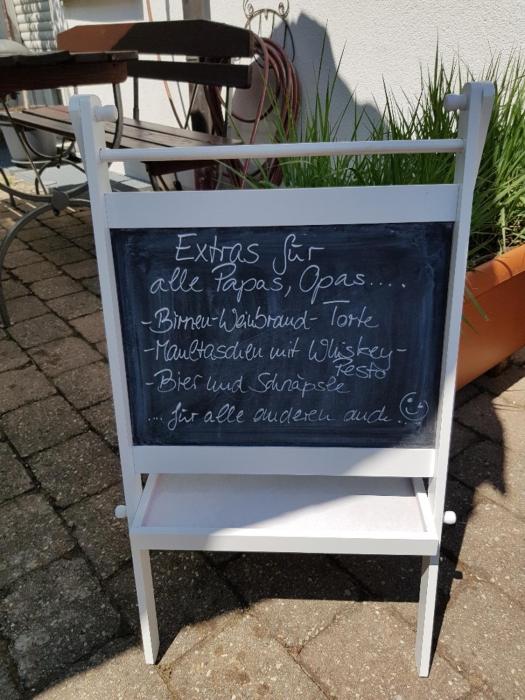 Extras für
alle Papas, Opas.....
-Birnen-Weinbrand-Torte
-Maultaschen mit Whiskey-
Pesto
-Bier und Schnäpsle
.... für alle anderen auch..